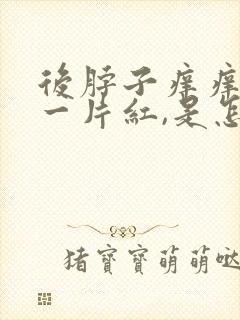 後脖子痒痒
一片紅,是怎
猪寶寶萌萌哒